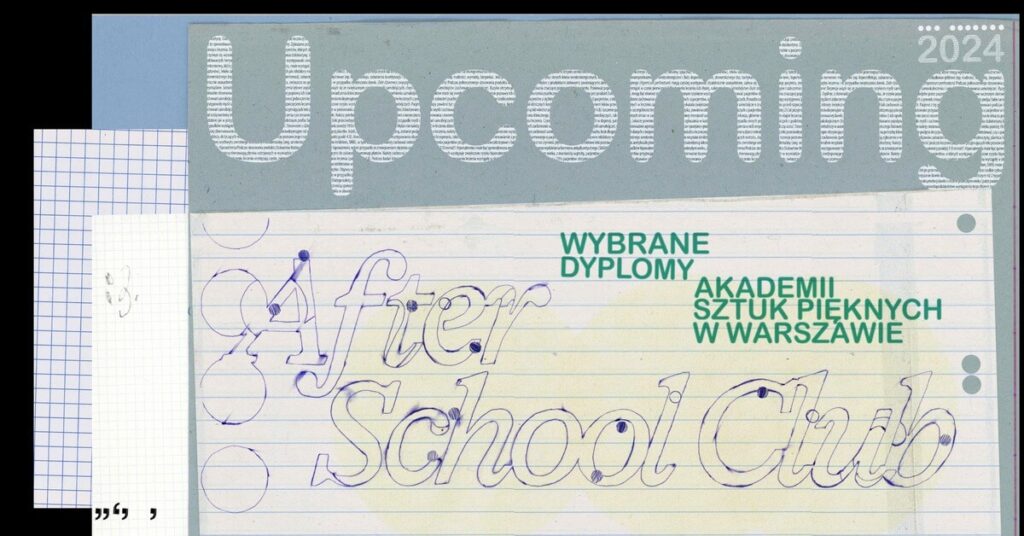 2024
Upcoming
WYBRANE
DYPLOMY
AKADEMII
SZTUK PIĘKNYCH
W WARSZAWIE
After
School Club